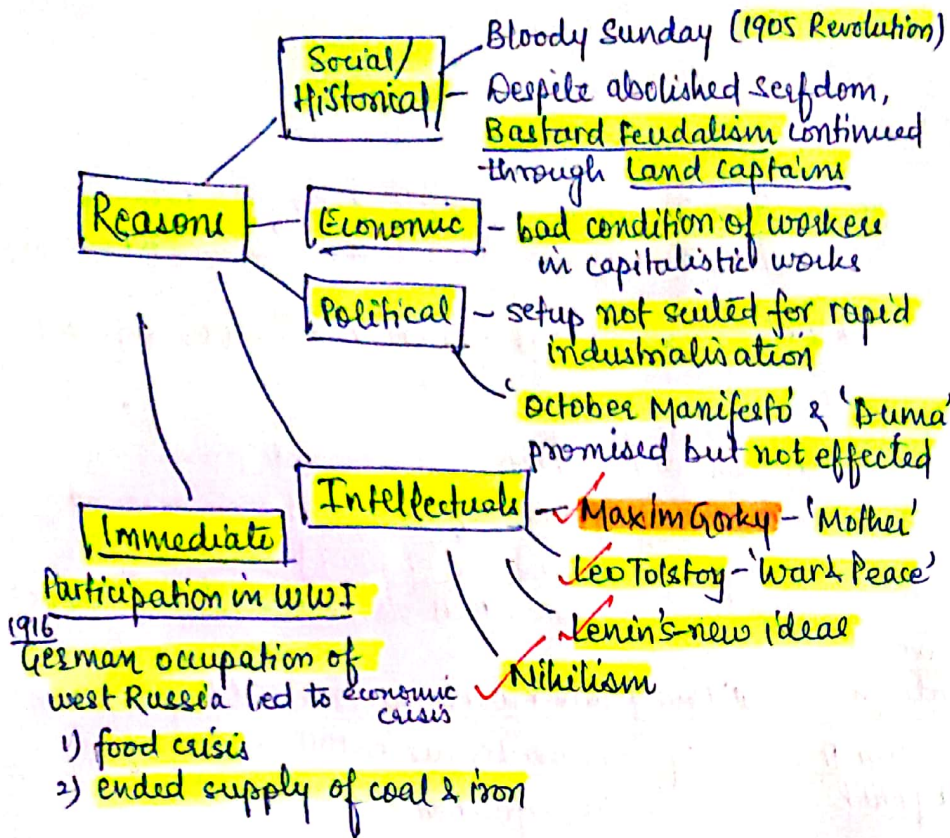 Reasons
Social/
Historical
Bloody Sunday (1905 Revolution)
Despite abolished serfdom,
Bastard Feudalism continued
through Land Captains
Economic - bad condition of workers
in capitalistic works
Political - setup not suited for rapid
industrialisation
'October Manifesto' & 'Duma'
promised but not effected
Intellectuals
Maxim Gorky - 'Mother'
Leo Tolstoy - 'War & Peace'
Lenin's - new ideas
Nihilism
Immediate
Participation in WWI
1916
German occupation of
west Russia led to economic
crisis
1) food crisis
2) ended supply of coal & iron